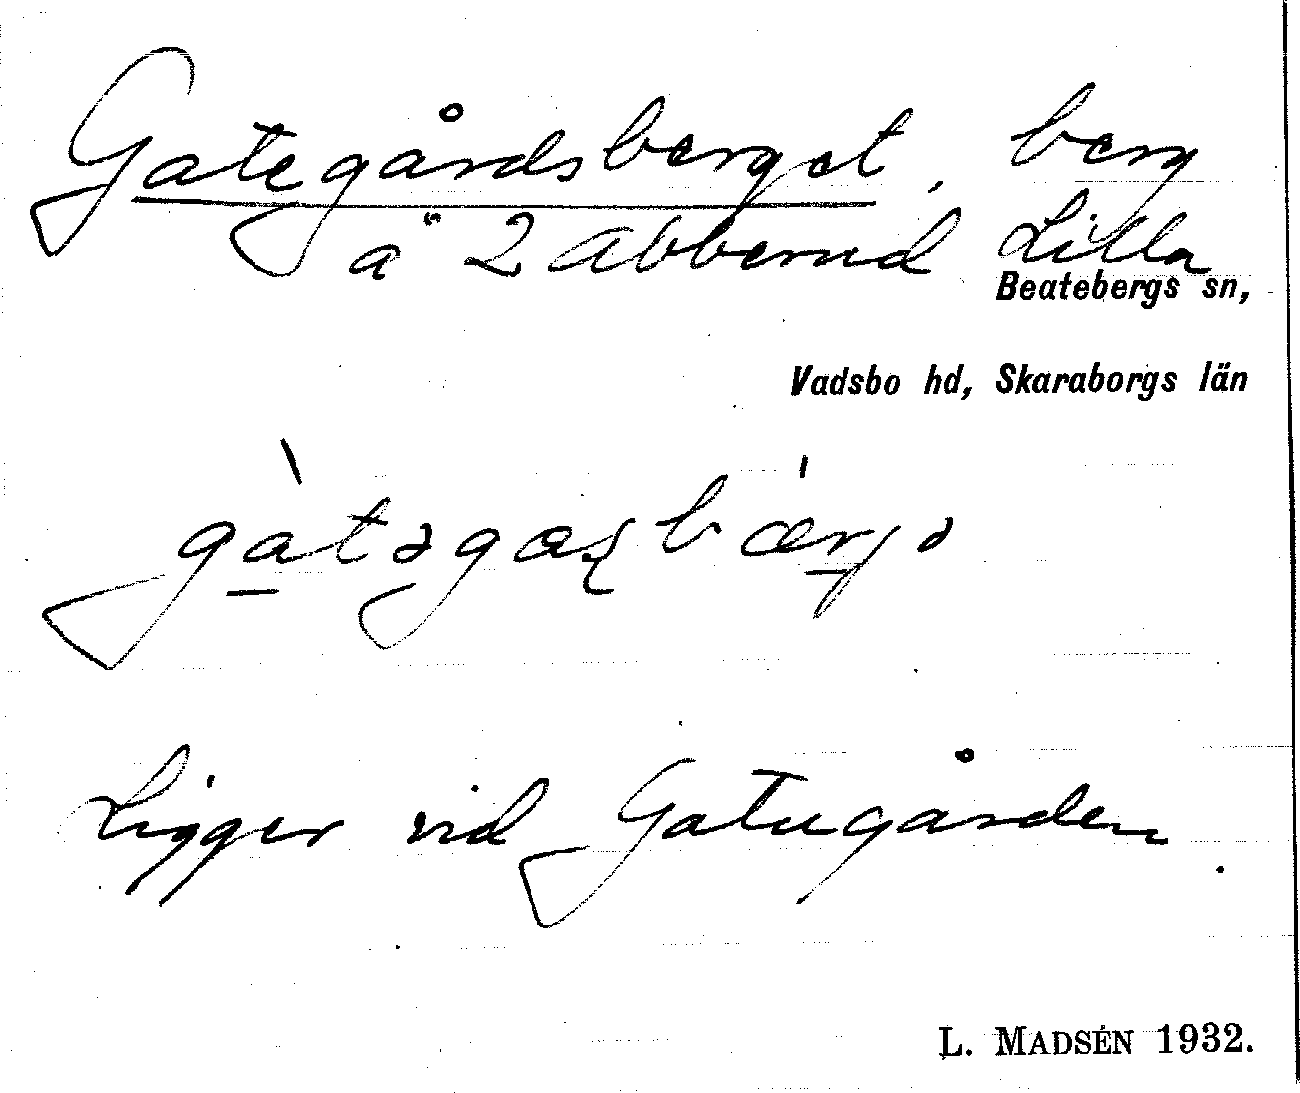 Gategårdsberget, berg
å 2 Abberud Lilla
Beatebergs sn,
Vadsbo hd, Skaraborgs län
Ligger vid Gatugården.
L. MADSÉN 1932.